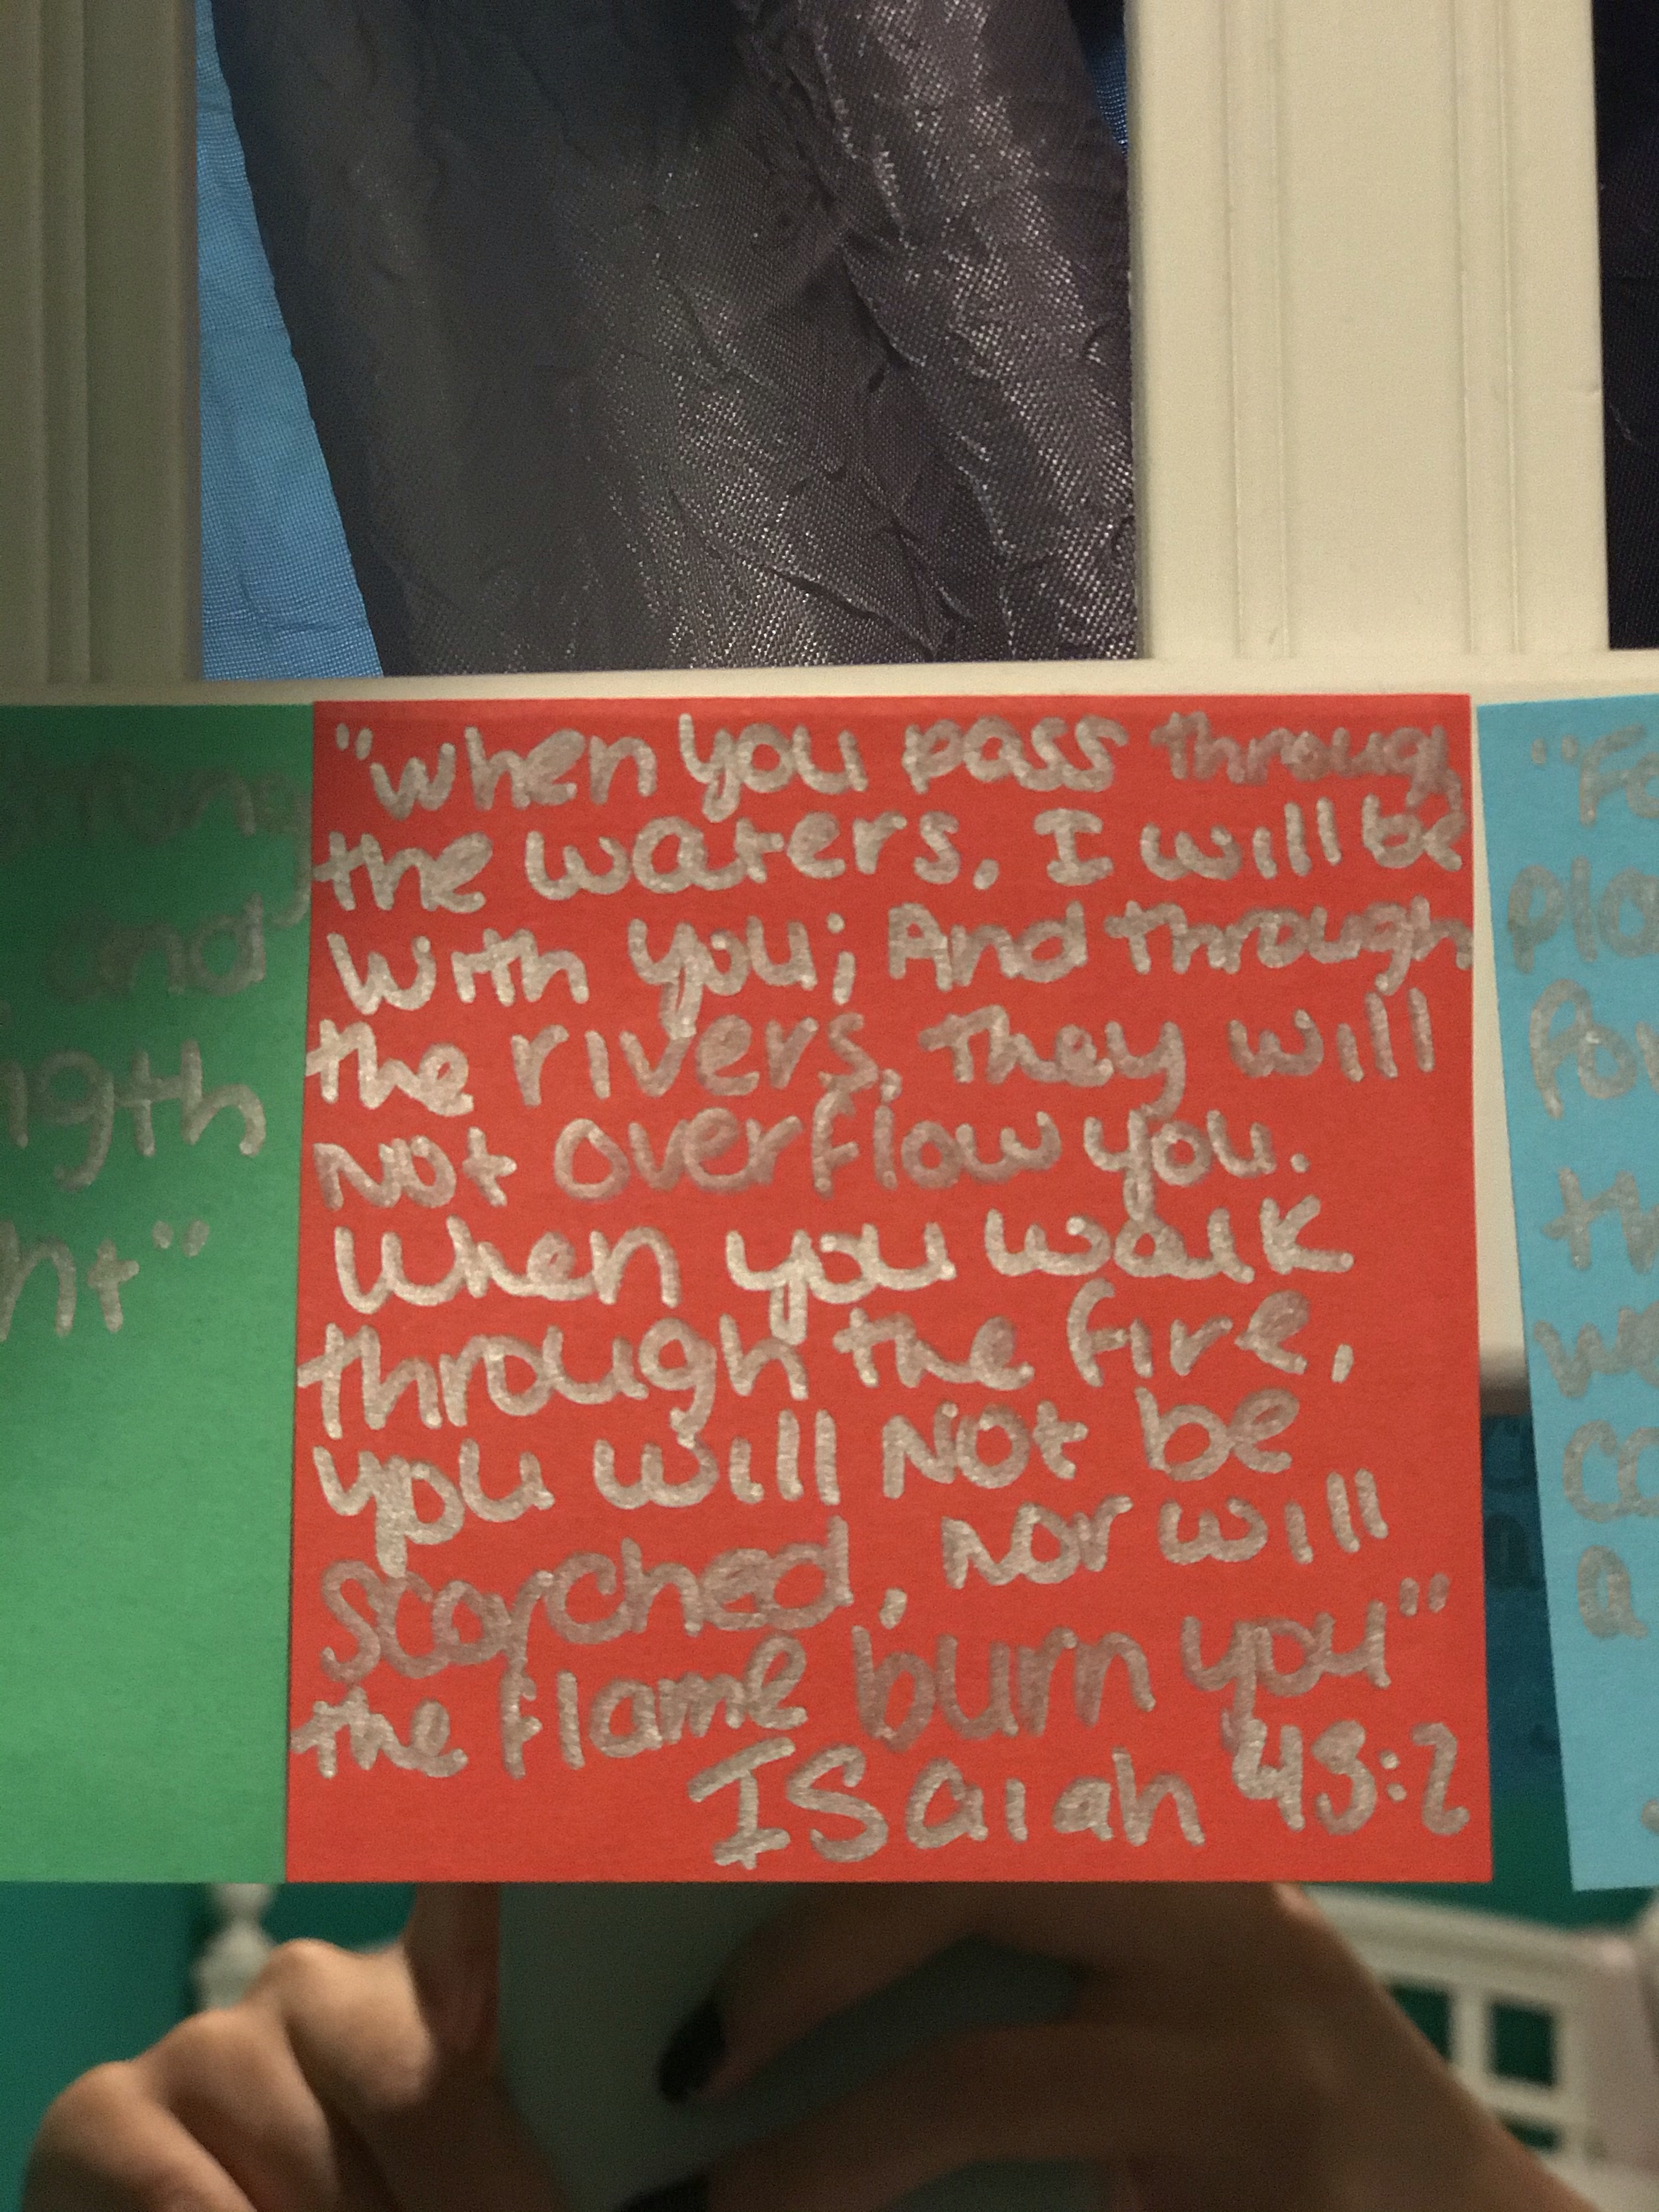 "when you pass through
the waters, I will be
With you; And through
the rivers, They will
Not overflow you.
When you walk
through the fire,
you will Not be
scorched, Nor will
the flame burn you"
ISaiah 43:2
and
ht"
"Fo